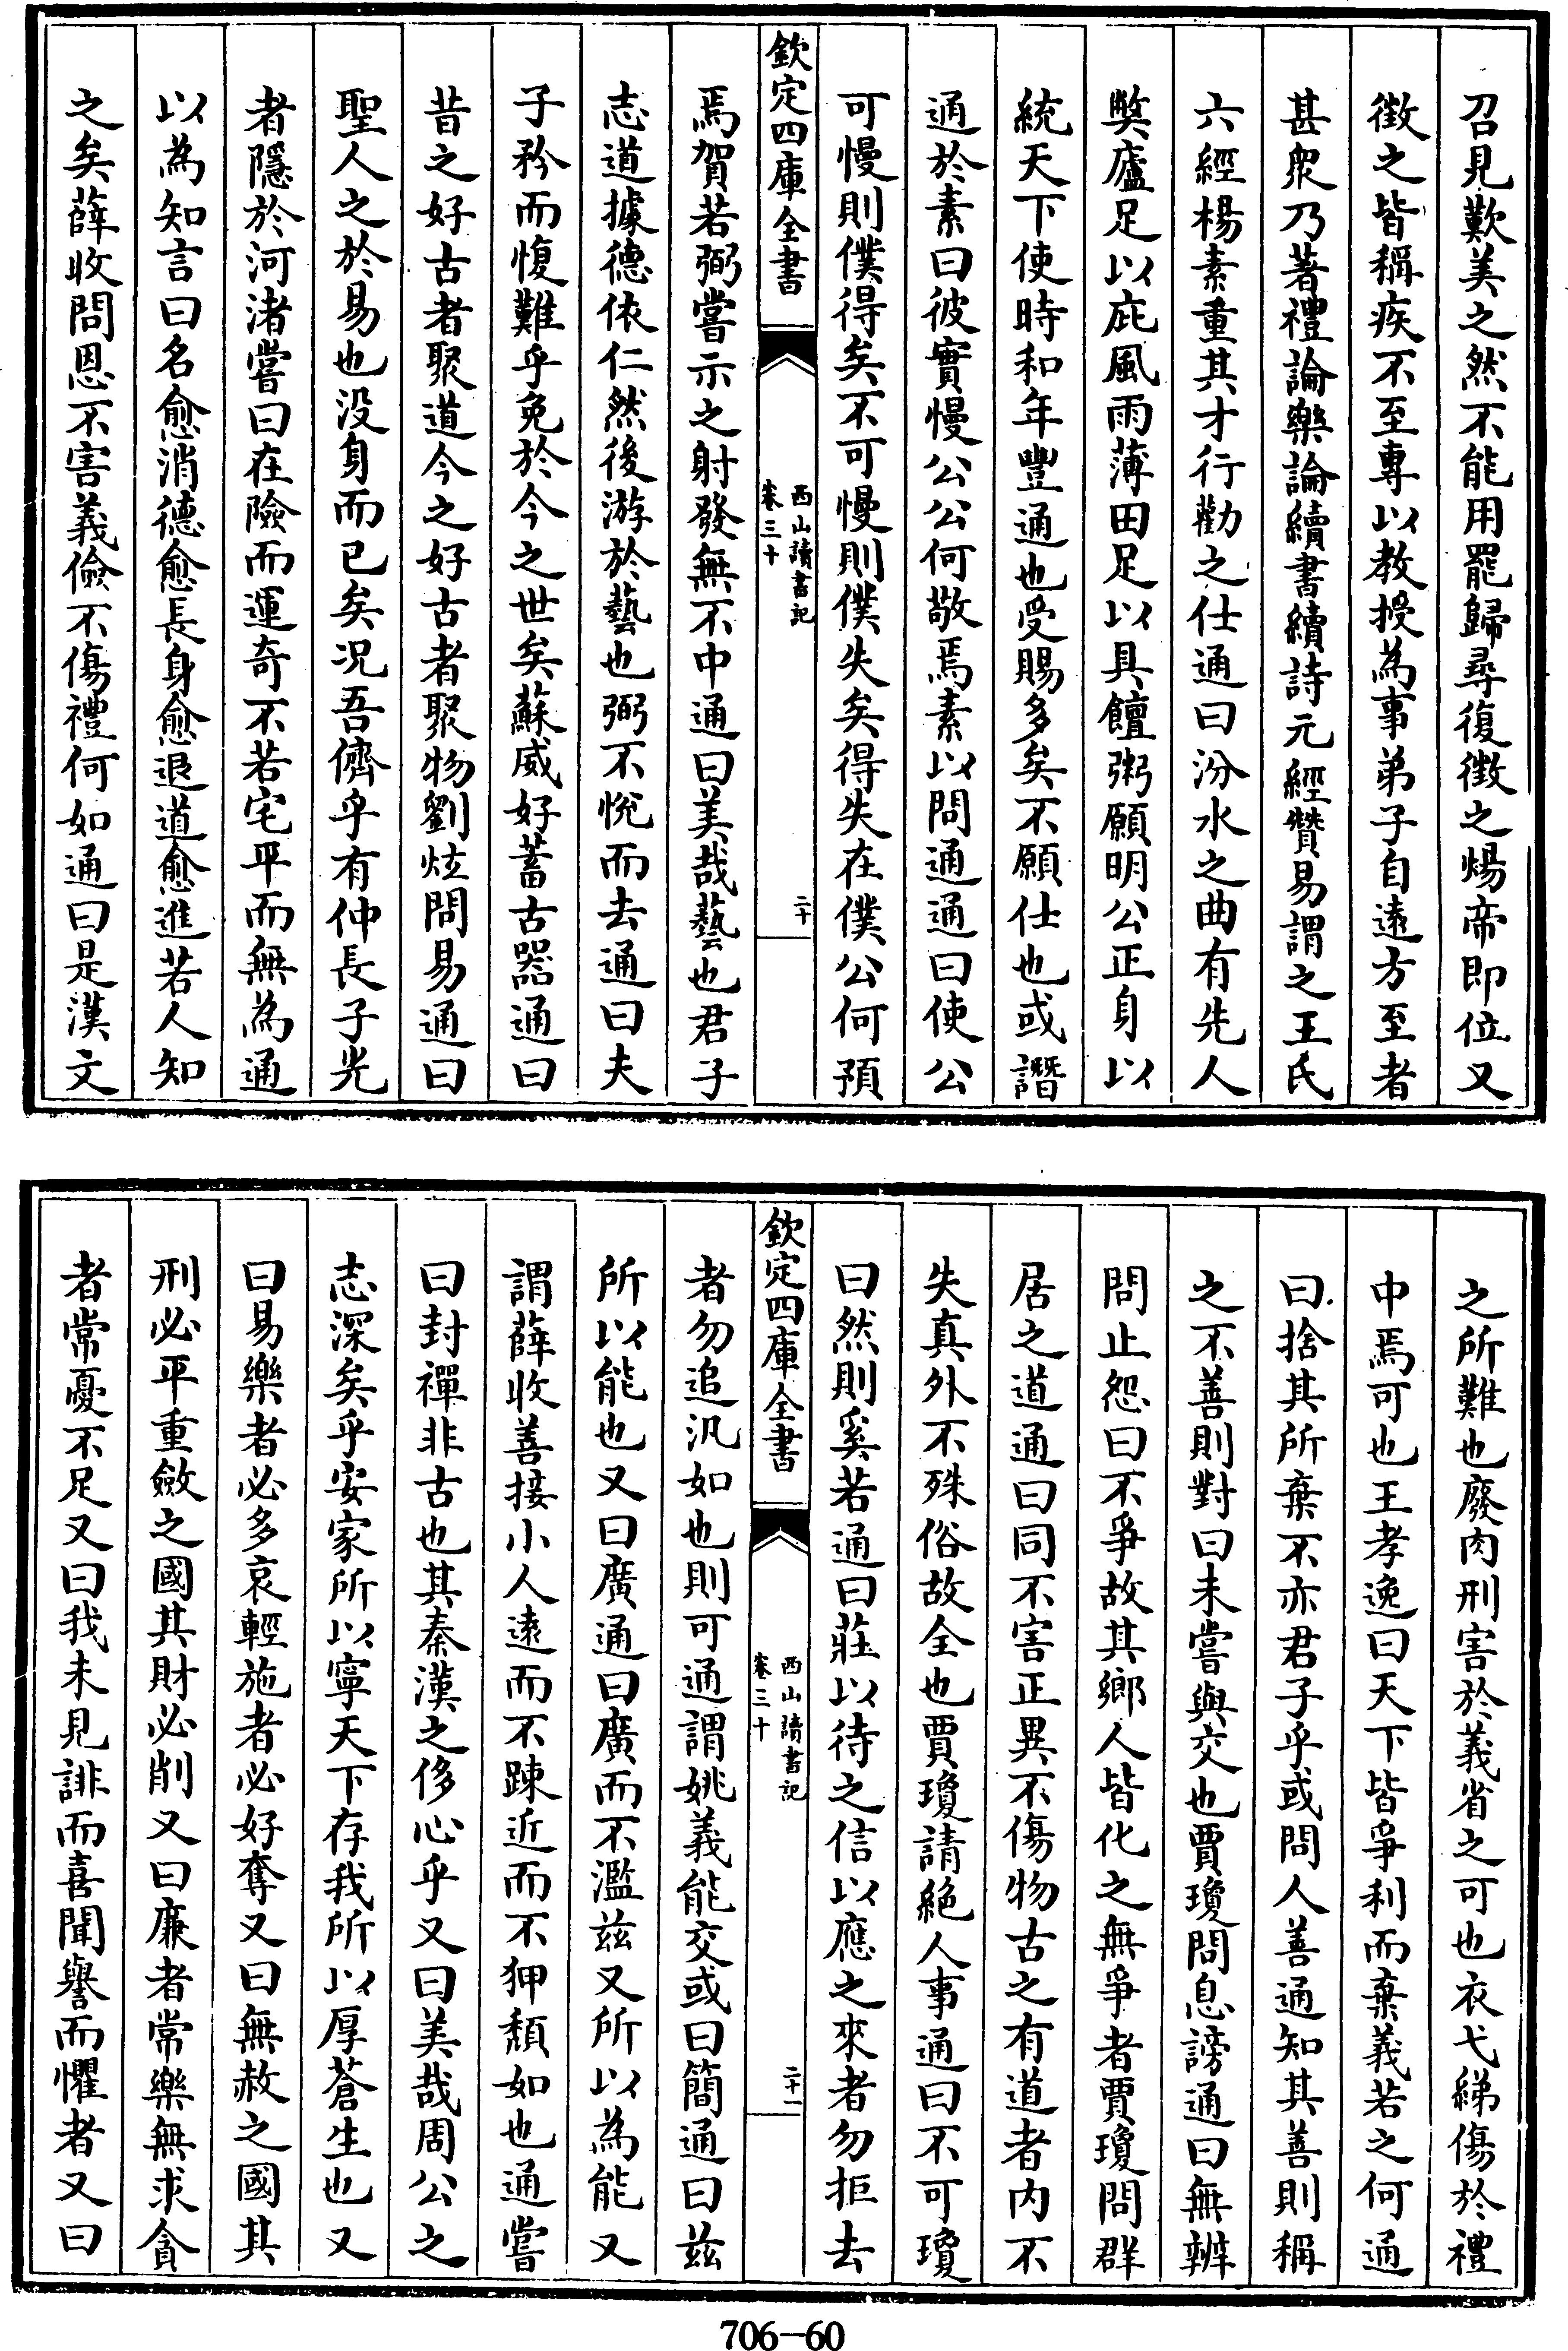 召見歎美之然不能用罷歸尋復徴之煬帝即位又
徴之皆稱疾不至專以教授為事弟子自逺方至者
甚衆乃著禮論樂論續書續詩元經贊易謂之王氏
六經楊素重其才行勸之仕通曰汾水之曲有先人
獘廬足以庇風雨薄田足以具饘粥願明公正身以
統天下使時和年豐通也受賜多矣不願仕也或譖
通於素曰彼實慢公公何敬焉素以問通通曰使公
可慢則僕得矣不可慢則僕失矣得失在僕公何預
欽定四庫全書
西山讀書記
卷三十
二十
焉賀若弼嘗示之射發無不中通曰美哉藝也君子
志道據德依仁然後游於藝也弼不悅而去通曰夫
子矜而愎難乎免於今之世矣蘇威好蓄古器通曰
昔之好古者聚道今之好古者聚物劉炫問易通曰
聖人之於易也没身而已矣况吾儕乎有仲長子光
者隱於河渚嘗曰在險而運奇不若宅平而無為通
以為知言曰名愈消德愈長身愈退道愈進若人知
之矣薛收問恩不害義儉不傷禮何如通曰是漢文
之所難也廢肉刑害於義省之可也衣弋綈傷於禮
中焉可也王孝逸曰天下皆爭利而棄義若之何通
曰捨其所棄不亦君子乎或問人善通知其善則稱
之不善則對曰未嘗與交也賈瓊問息謗通曰無辨
問止怨曰不爭故其鄉人皆化之無爭者賈瓊問群
居之道通曰同不害正異不傷物古之有道者内不
失真外不殊俗故全也賈瓊請絶人事通曰不可瓊
曰然則奚若通曰莊以待之信以應之來者勿拒去
欽定四庫全書
西山讀書記
卷三十
二十一
者勿追汎如也則可通謂姚義能交或曰簡通曰兹
所以能也又曰廣通曰廣而不濫兹又所以為能又
謂薛收善接小人逺而不踈近而不狎頽如也通嘗
曰封禪非古也其秦漢之侈心乎又曰美哉周公之
志深矣乎安家所以寧天下存我所以厚蒼生也又
曰易樂者必多哀輕施者必好奪又曰無赦之國其
刑必平重斂之國其財必削又曰廉者常樂無求貪
者常憂不足又曰我未見誹而喜聞譽而懼者又曰
706-60